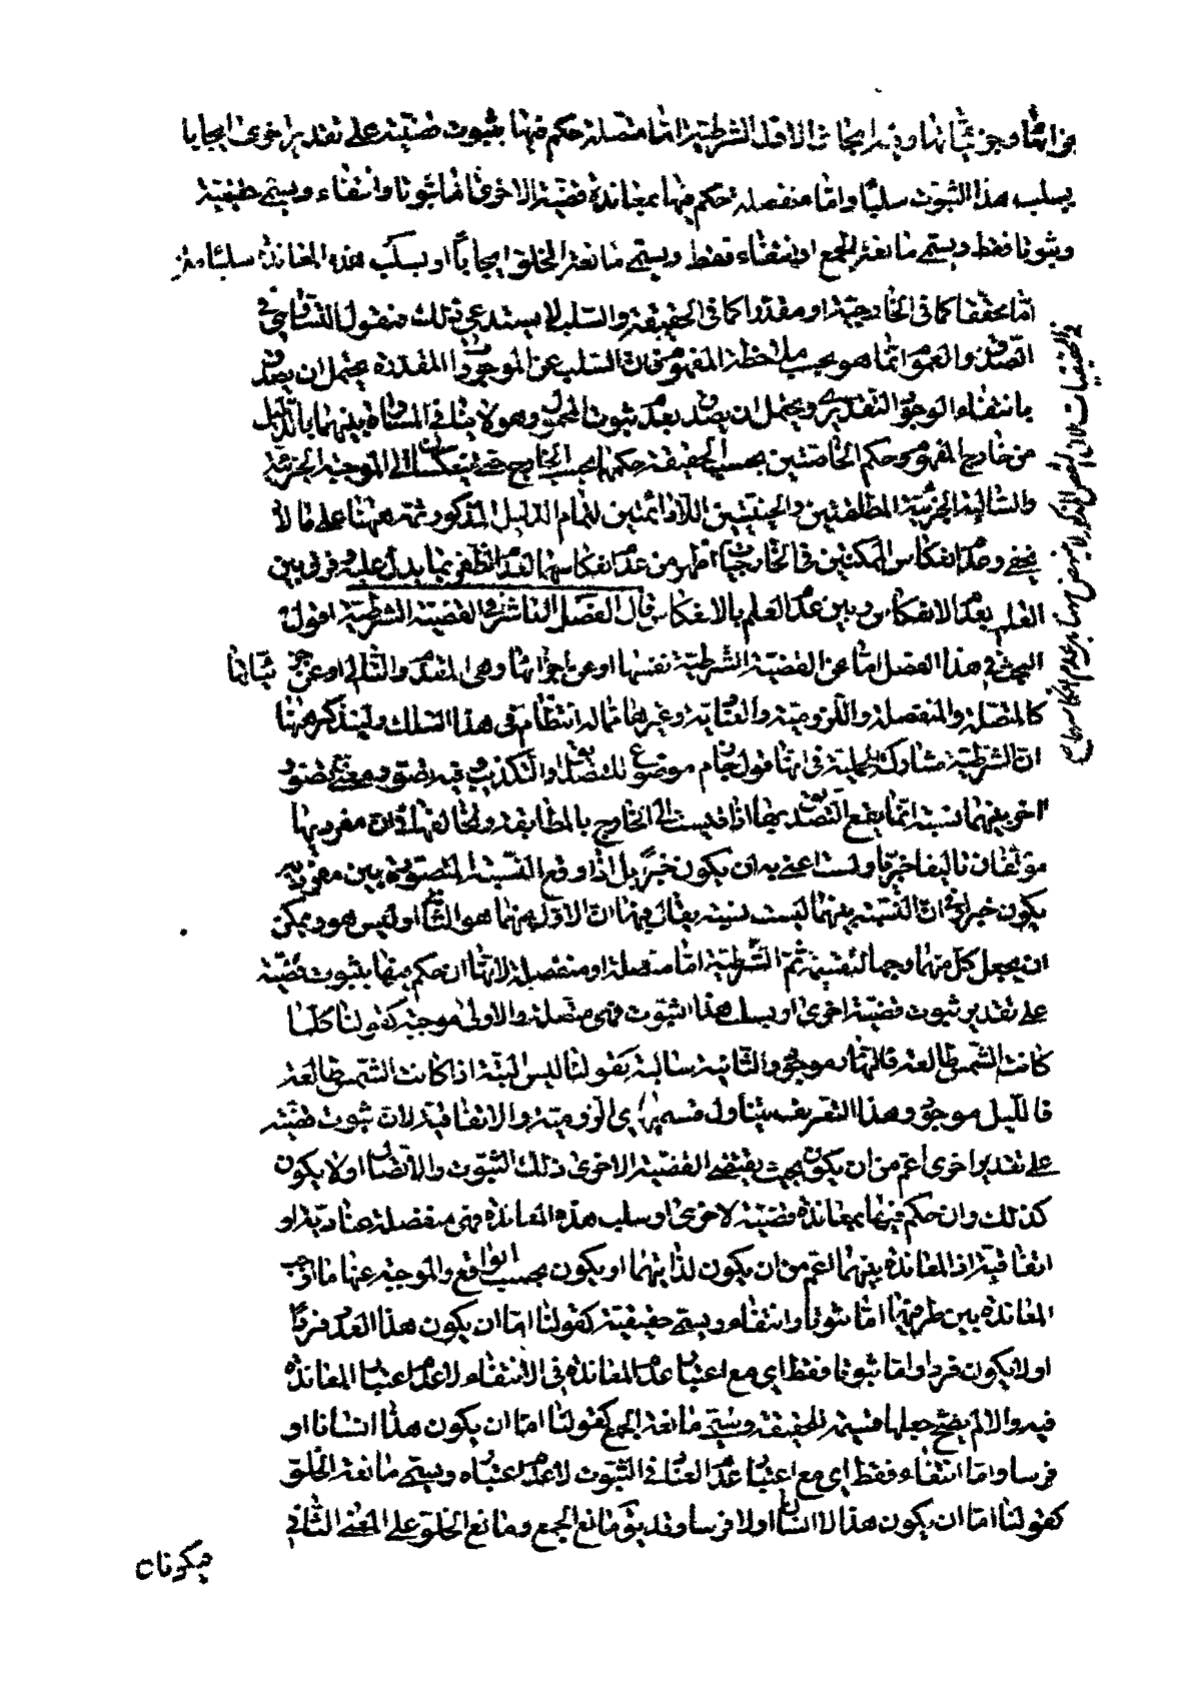 اجزائها وجزئياتها وفيه ابحاث الاول الشرطية اما متصلة حكم فيها بثبوت قضية على تقدير اخرى ايجابا
بسلب هذا الثبوت سلبا واما منفصلة حكم فيها بمعاندة قضية لاخرى اما ثبوتا وانتفاء ويسمى حقيقية
وثبوتا فقط ويسمى مانعة الجمع او انتفاء فقط ويسمى مانعة الخلو ايجابا او بسلب هذه المعاندة سلبا
اما محققا كما في الخارجية او مقدرا كما في الحقيقية والسلب لا يستدعي ذلك فنقول التساوي في
الصدق والعموم انما هو بحسب ملاحظة المفهوم فان السلب عن الموجود المقدرة يحتمل ان يصدق
بانتفاء الوجود التقديري ويحتمل ان يصدق بعدم ثبوت المحمول وهو لا ينافي المساواة بينهما بالدليل
من خارج المفهوم وحكم الخاصتين بحسب الحقيقة حكمهما بحسب الخارج حتى ينعكسان الى الموجبة الجزئية
والسالبة الجزئية المطلقتين والحينيتين اللادائمتين لتمام الدليل المذكور ثمة ههنا على ما لا
يخفى وعدم انعكاس الممكنتين في الخارجيات اظهر من عدم انعكاسهما لعدم الظفر بما يدل عليه وفرق بين
العلم بعدم الانعكاس وبين عدم العلم بالانعكاس قال الفصل الثالث في القضية الشرطية اقول
البحث في هذا الفصل اما عن القضية الشرطية نفسها او عن اجزائها وهى المقدم والتالي او عن جزئياتها
كالمتصلة والمنفصلة واللزومية والعنادية وغيرها مما له انتظام في هذا السلك ولنذكر ههنا
ان الشرطية مشارك للحملية في انها قول جازم موضوع للتصديق والتكذيب فيه تصور معنى وتصور
اخر بينهما نسبة انما يقع التصديق بها اذا قيست الى الخارج بالمطابقة ولمخالفها اذ ان مفرديها
مؤلفان تاليفا خبريا ولست اعني به ان يكون خبرا بل اذا وقع النسبة المتصورة بين مفرديه
يكون خبرا وفي ان النسبة بينهما ليست نسبة يقال فيها ان الاول منهما هو الثاني او ليس هو ويمكن
ان يجعل كل منهما وجها لقضية ثم الشرطية اما متصلة او منفصلة لانها ان حكم فيها بثبوت قضية
على تقدير ثبوت قضية اخرى او بسلب هذا الثبوت فهى متصلة والاولى موجبة كقولنا كلما
كانت الشمس طالعة فالنهار موجود والثانية سالبة كقولنا ليس البتة اذا كانت الشمس طالعة
فالليل موجود وهذا التعريف يتناول قسميها اي اللزومية والاتفاقية لان ثبوت قضية
على تقدير اخرى اعم من ان يكون بحيث يقتضى القضية الاخرى ذلك الثبوت والاتصال او لا يكون
كذلك وان حكم فيها بمعاندة قضية لاخرى او سلب هذه المعاندة فهى منفصلة عنادية او
اتفاقية اذ المعاندة بينهما اعم من ان يكون لذاتيهما او يكون بحسب الواقع والموجبة عنها ما اوجب
المعاندة بين طرفيها اما ثبوتا وانتفاء ويسمى حقيقية كقولنا اما ان يكون هذا العدد فردا
او لا يكون فردا واما ثبوتا فقط اي مع اعتبار عدم المعاندة في الانتفاء لا عدم اعتبار المعاندة
فيه والا لم يصح جعلها قسيمة للحقيقة ويسمى مانعة الجمع كقولنا اما ان يكون هذا انسانا او
فرسا واما انتفاء فقط اي مع اعتبار عدم العناد في الثبوت لا عدم اعتباره ويسمى مانعة الخلو
كقولنا اما ان يكون هذا لا انسانا او لا فرسا وقد يقع مانع الجمع ومانع الخلو على المعنى الثاني
فيكونان